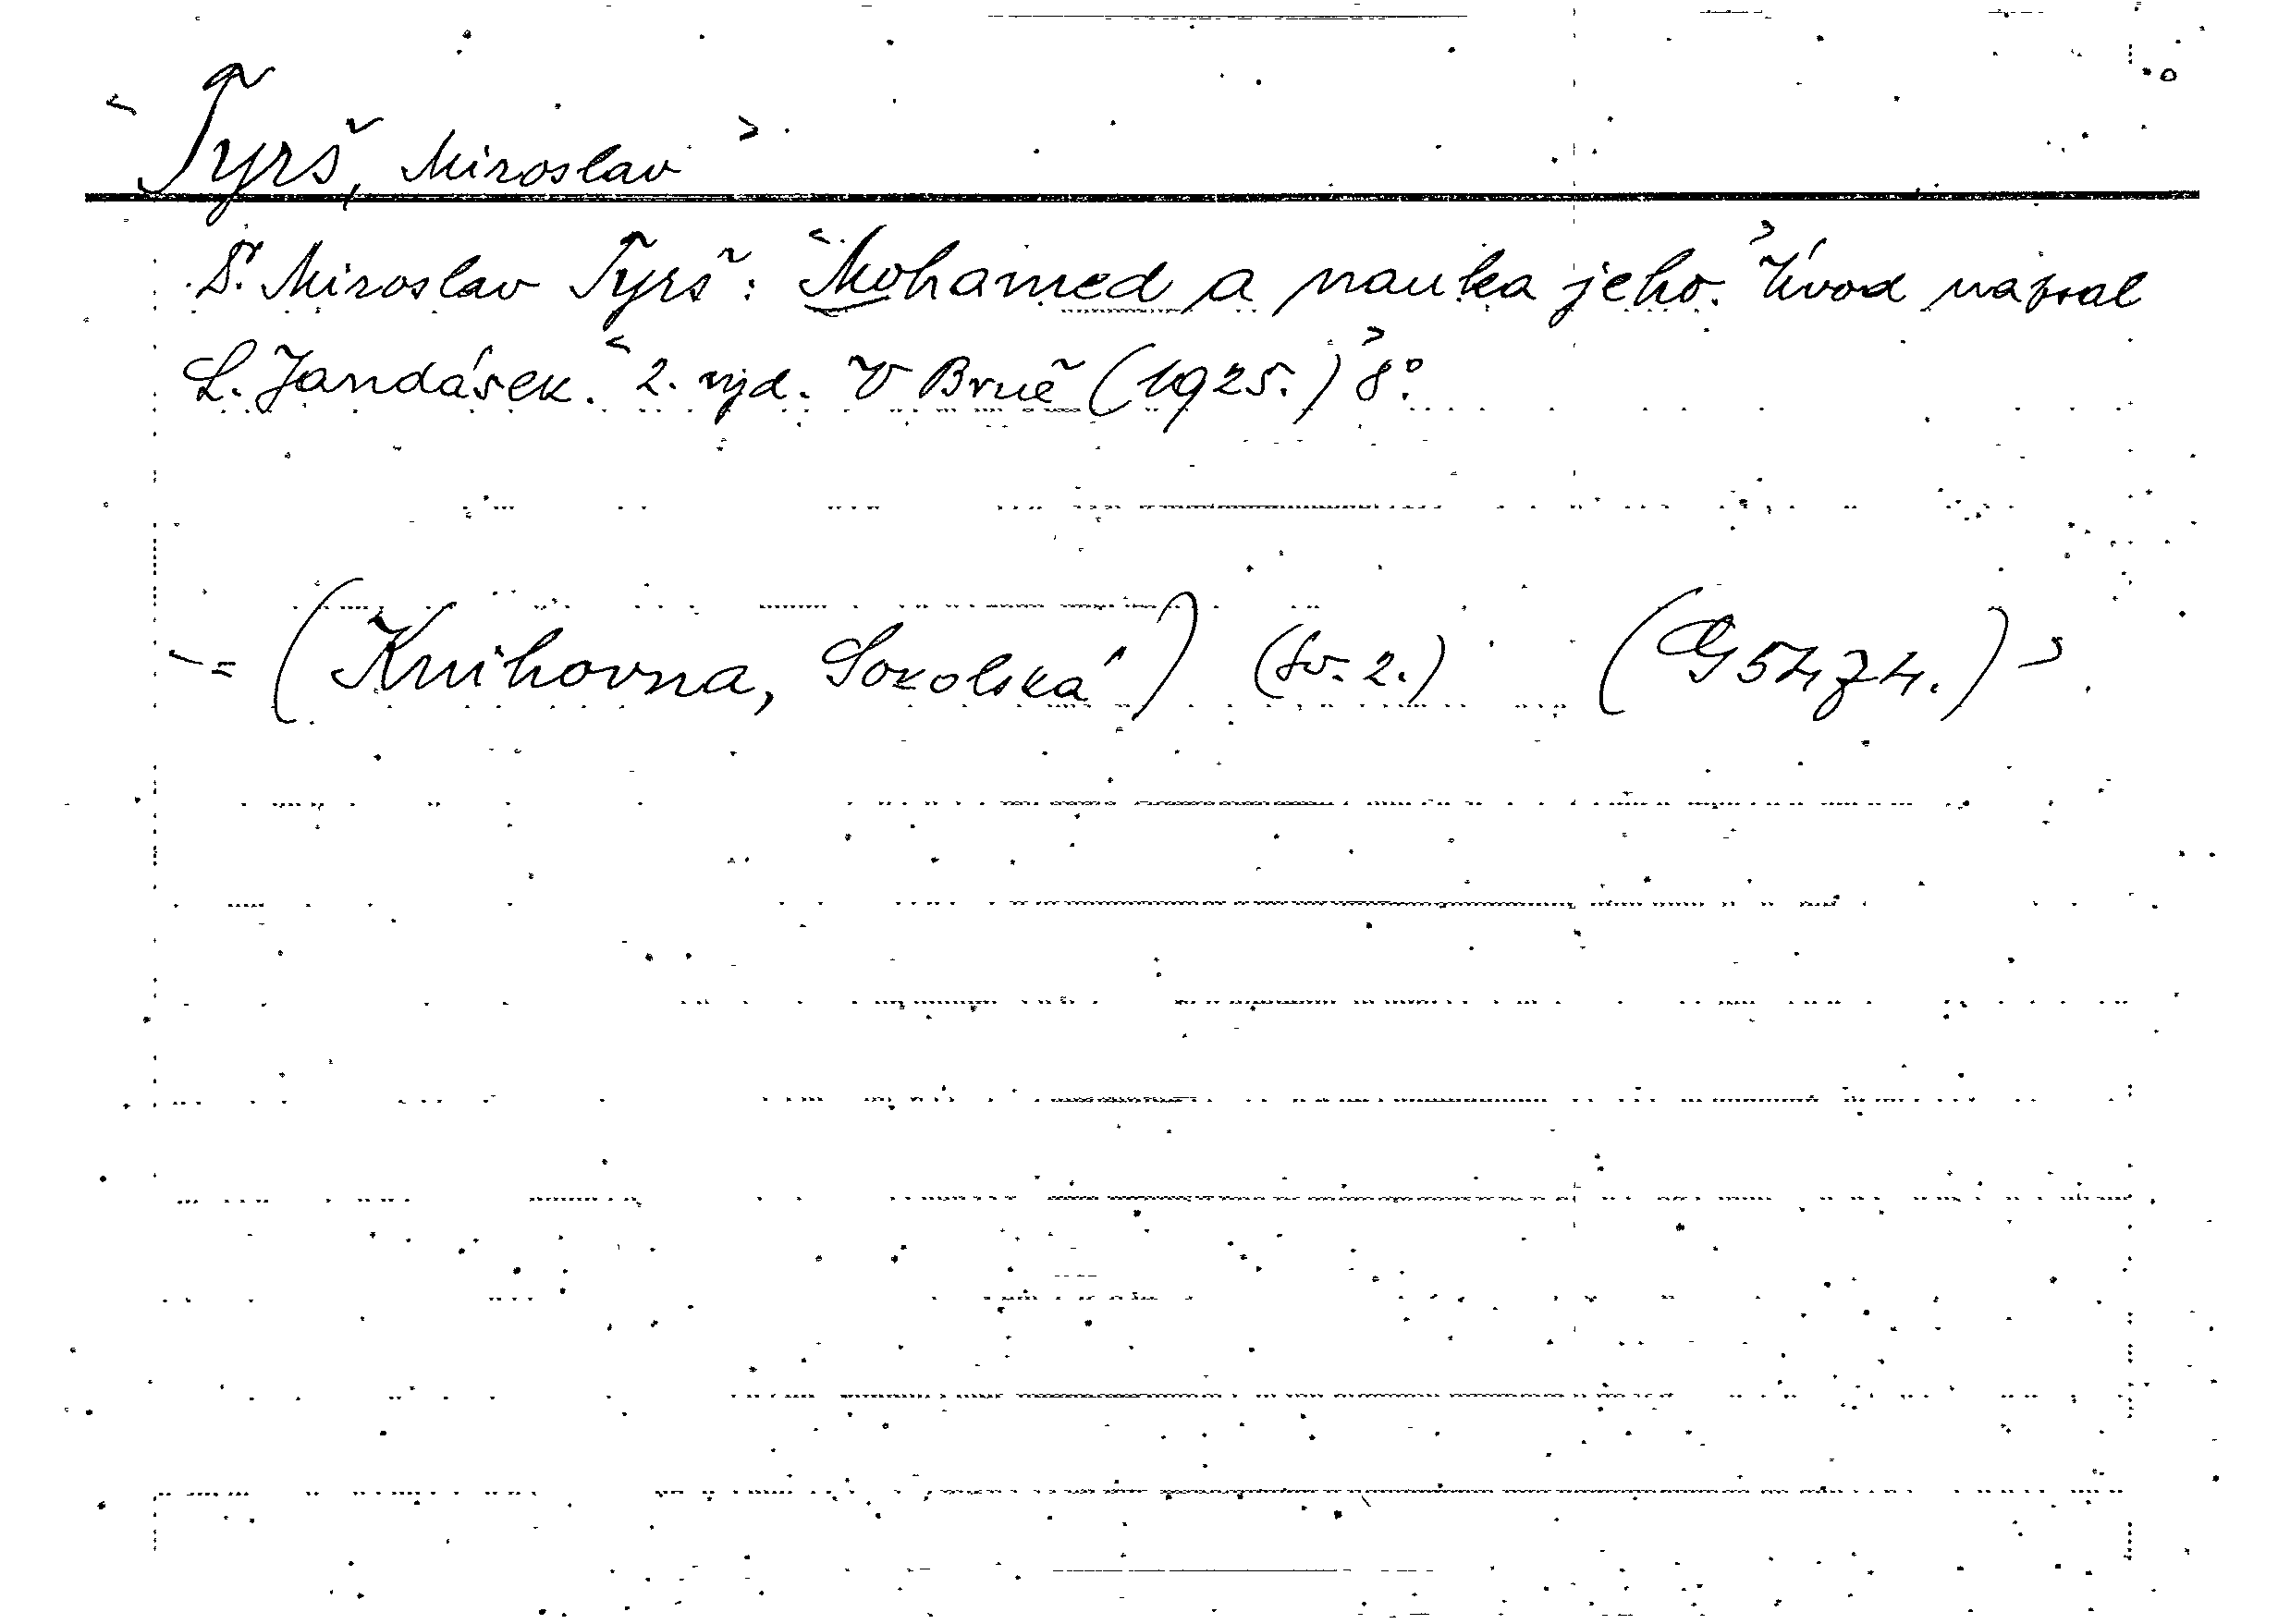 <Tyrš, Miroslav>
Dr. Miroslav Tyrš: <Mohamed a nauka jeho.> Úvod napsal
L. Jandásek. <2. vyd. V Brně (1925.)> 8°.
<= (Knihovna, Sokolská) (Sv. 2.) (G 5474.)>